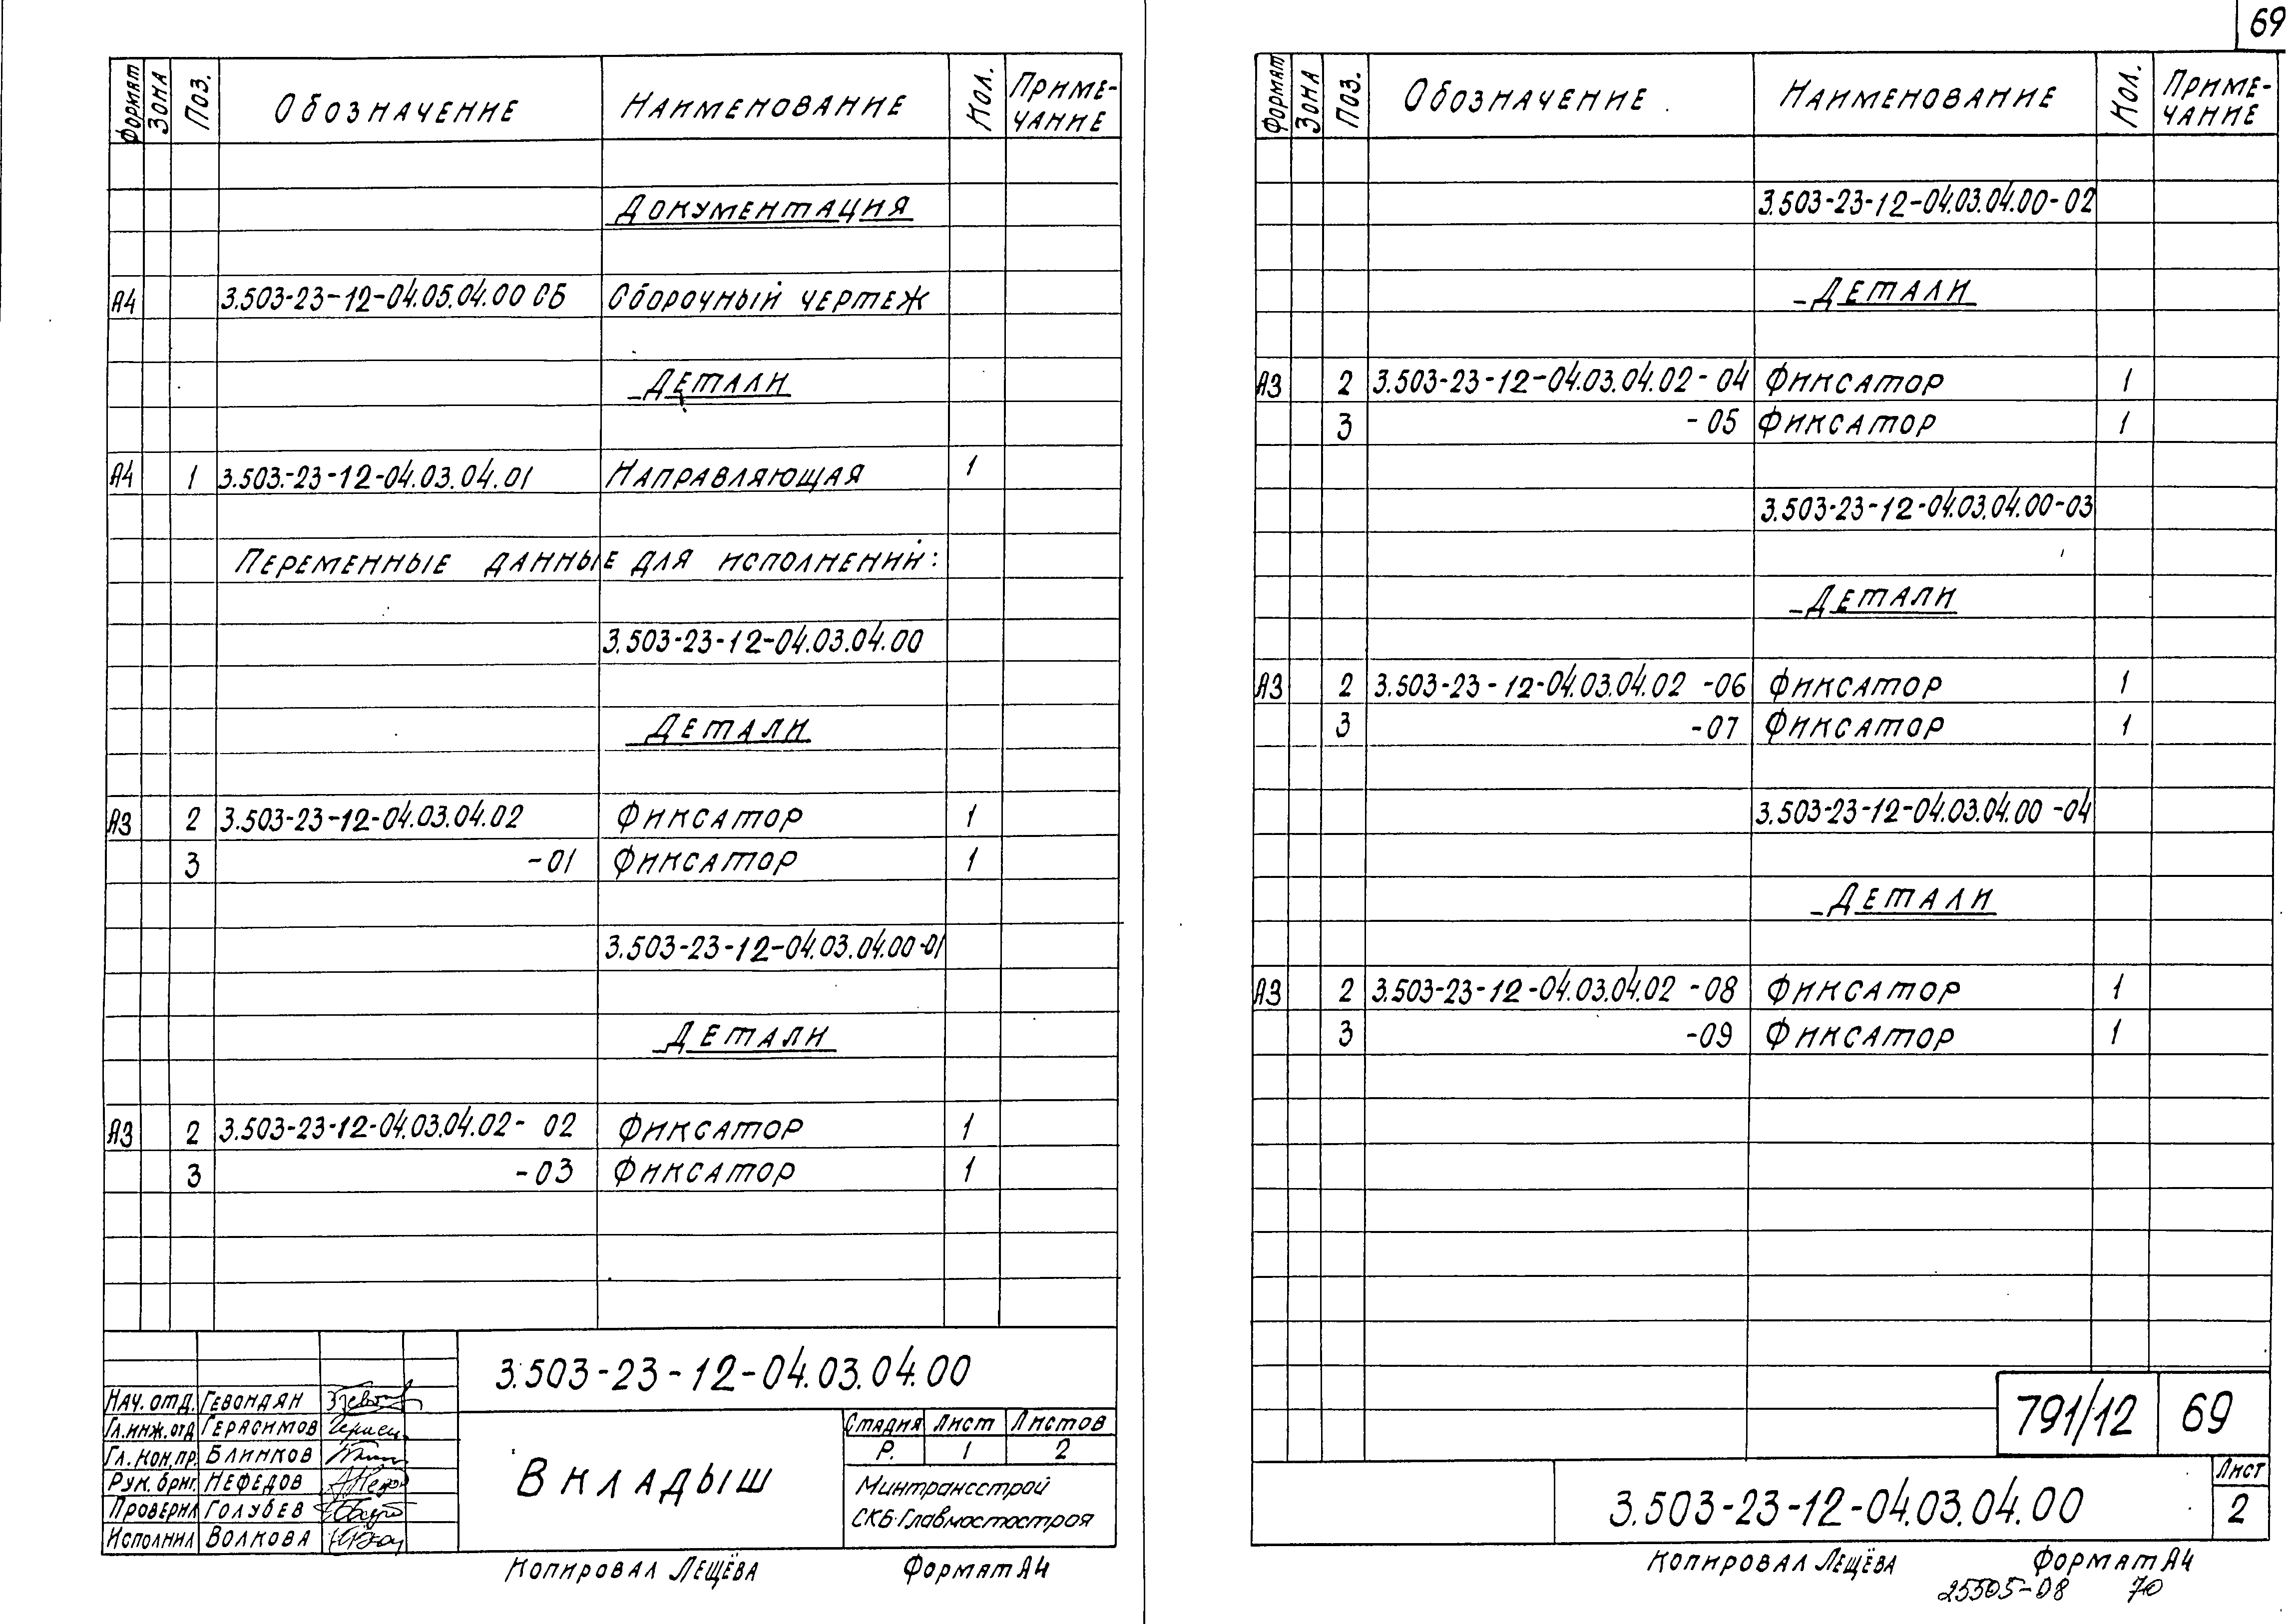 69
Формат Зона Поз. Обозначение Наименование Кол. Приме-
чание
Документация
А4 3.503-23-12-04.05.04.00 СБ Сборочный чертеж
Детали
А4 1 3.503.-23-12-04.03.04.01 Направляющая 1
Переменные данные для исполнений:
3.503-23-12-04.03.04.00
Детали
А3 2 3.503-23-12-04.03.04.02 Фиксатор 1
3 -01 Фиксатор 1
3.503-23-12-04.03.04.00-01
Детали
А3 2 3.503-23-12-04.03.04.02- 02 Фиксатор 1
3 -03 Фиксатор 1
3.503-23-12-04.03.04.00
Нач. отд. Гевондян
Гл.инж.отд Герасимов
Гл. кон.пр. Блинков
Рук. бриг. Нефедов
Проверил Голубев
Исполнил Волкова
Вкладыш
Стадия Лист Листов
Р. 1 2
Минтрансстрой
СКБ Главмостостроя
Копировал Лещёва Формат А4
Формат Зона Поз. Обозначение Наименование Кол. Приме-
чание
3.503-23-12-04.03.04.00-02
Детали
А3 2 3.503-23-12-04.03.04.02-04 Фиксатор 1
3 -05 Фиксатор 1
3.503-23-12-04.03.04.00-03
Детали
А3 2 3.503-23-12-04.03.04.02 -06 Фиксатор 1
3 -07 Фиксатор 1
3.503-23-12-04.03.04.00 -04
Детали
А3 2 3.503-23-12-04.03.04.02 -08 Фиксатор 1
3 -09 Фиксатор 1
791/12 69
3.503-23-12-04.03.04.00
Лист
2
Копировал Лещёва Формат А4
25505-08 70